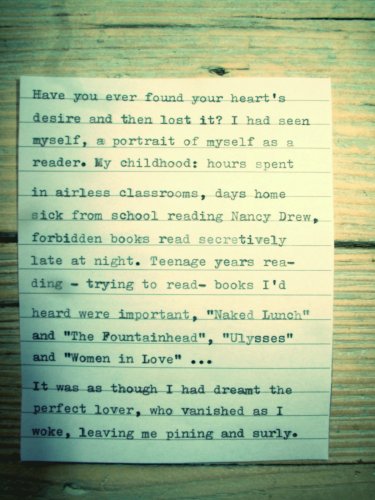 Have you ever found your heart's
desire and then lost it? I had seen
myself, a portrait of myself as a
reader. My childhood: hours spent
in airless classrooms, days home
sick from school reading Nancy Drew,
forbidden books read secretively
late at night. Teenage years rea-
ding - trying to read- books I'd
heard were important, "Naked Lunch"
and "The Fountainhead", "Ulysses"
and "Women in Love" ...
It was as though I had dreamt the
perfect lover, who vanished as I
woke, leaving me pining and surly.